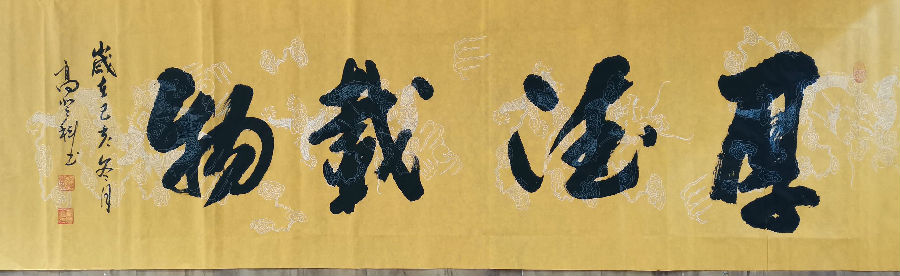 厚德載物
歲在己亥冬月
高登科书